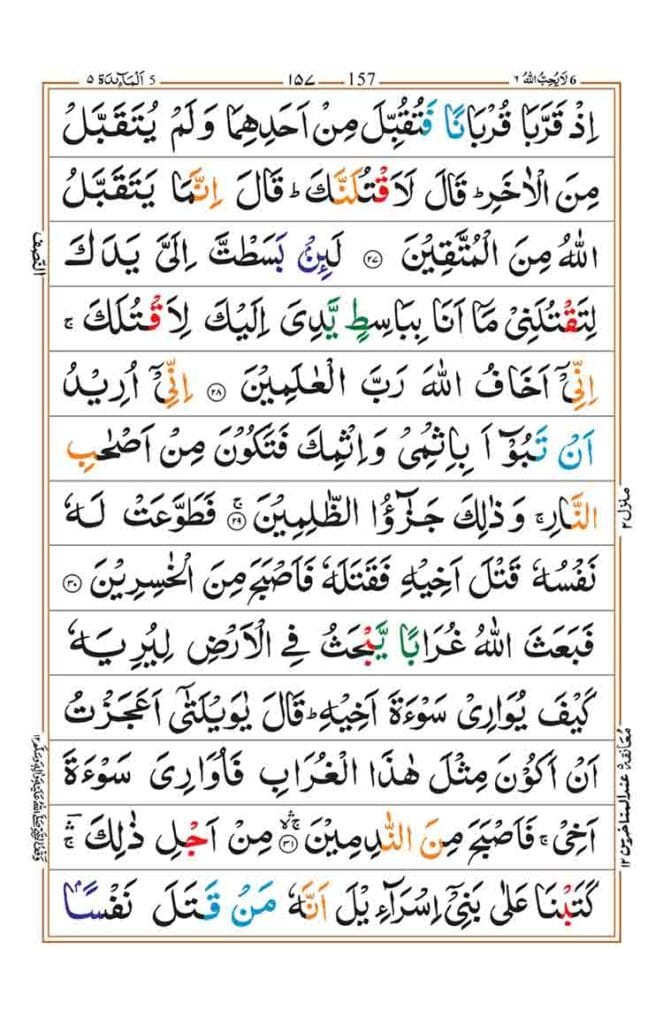 لَا يُحِبُّ اللّٰهُ ٦ 6 157 ١٥٧ اَلْمَآئِدَة ٥ 5
اِذْ قَرَّبَا قُرْبَانًا فَتُقُبِّلَ مِنْ اَحَدِهِمَا وَلَمْ يُتَقَبَّلْ
مِنَ الْاٰخَرِ ؕ قَالَ لَاَقْتُلَنَّكَ ؕ قَالَ اِنَّمَا يَتَقَبَّلُ
اللّٰهُ مِنَ الْمُتَّقِيْنَ ۝۲۷ لَئِنْۢ بَسَطْتَّ اِلَیَّ يَدَكَ
لِتَقْتُلَنِیْ مَاۤ اَنَا بِبَاسِطٍ يَّدِیَ اِلَيْكَ لِاَقْتُلَكَ ۚ
اِنِّیْۤ اَخَافُ اللّٰهَ رَبَّ الْعٰلَمِيْنَ ۝۲۸ اِنِّیْۤ اُرِيْدُ
اَنْ تَبُوْٓاَ بِاِثْمِیْ وَاِثْمِكَ فَتَكُوْنَ مِنْ اَصْحٰبِ
النَّارِ ۚ وَذٰلِكَ جَزٰٓؤُا الظّٰلِمِيْنَ ۝۲۹ ۚ فَطَوَّعَتْ لَهٗ
نَفْسُهٗ قَتْلَ اَخِيْهِ فَقَتَلَهٗ فَاَصْبَحَ مِنَ الْخٰسِرِيْنَ ۝۳۰
فَبَعَثَ اللّٰهُ غُرَابًا يَّبْحَثُ فِی الْاَرْضِ لِيُرِيَهٗ
كَيْفَ يُوَارِیْ سَوْءَةَ اَخِيْهِ ؕ قَالَ يٰوَيْلَتٰۤی اَعَجَزْتُ
اَنْ اَكُوْنَ مِثْلَ هٰذَا الْغُرَابِ فَاُوَارِیَ سَوْءَةَ
اَخِیْ ۚ فَاَصْبَحَ مِنَ النّٰدِمِيْنَ ۝۳۱ ۚۛۙ مِنْ اَجْلِ ذٰلِكَ ۚۛ
كَتَبْنَا عَلٰی بَنِیْۤ اِسْرَآءِيْلَ اَنَّهٗ مَنْ قَتَلَ نَفْسًۢا
النّصف
منزل ٢
معانقة عند المتاخرين ١٢